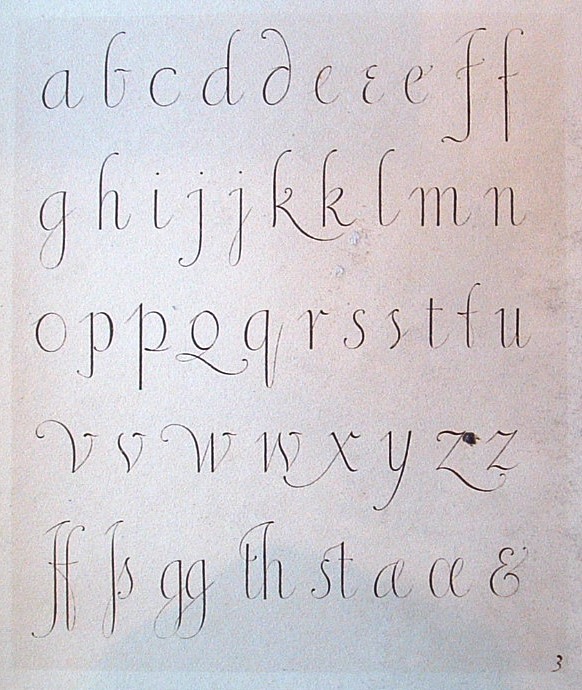 a b c d d e e e f f
g h i j j k k l m n
o p p q q r s s t t u
v v w w x y z z
ff ſs gg th st æ œ &
3